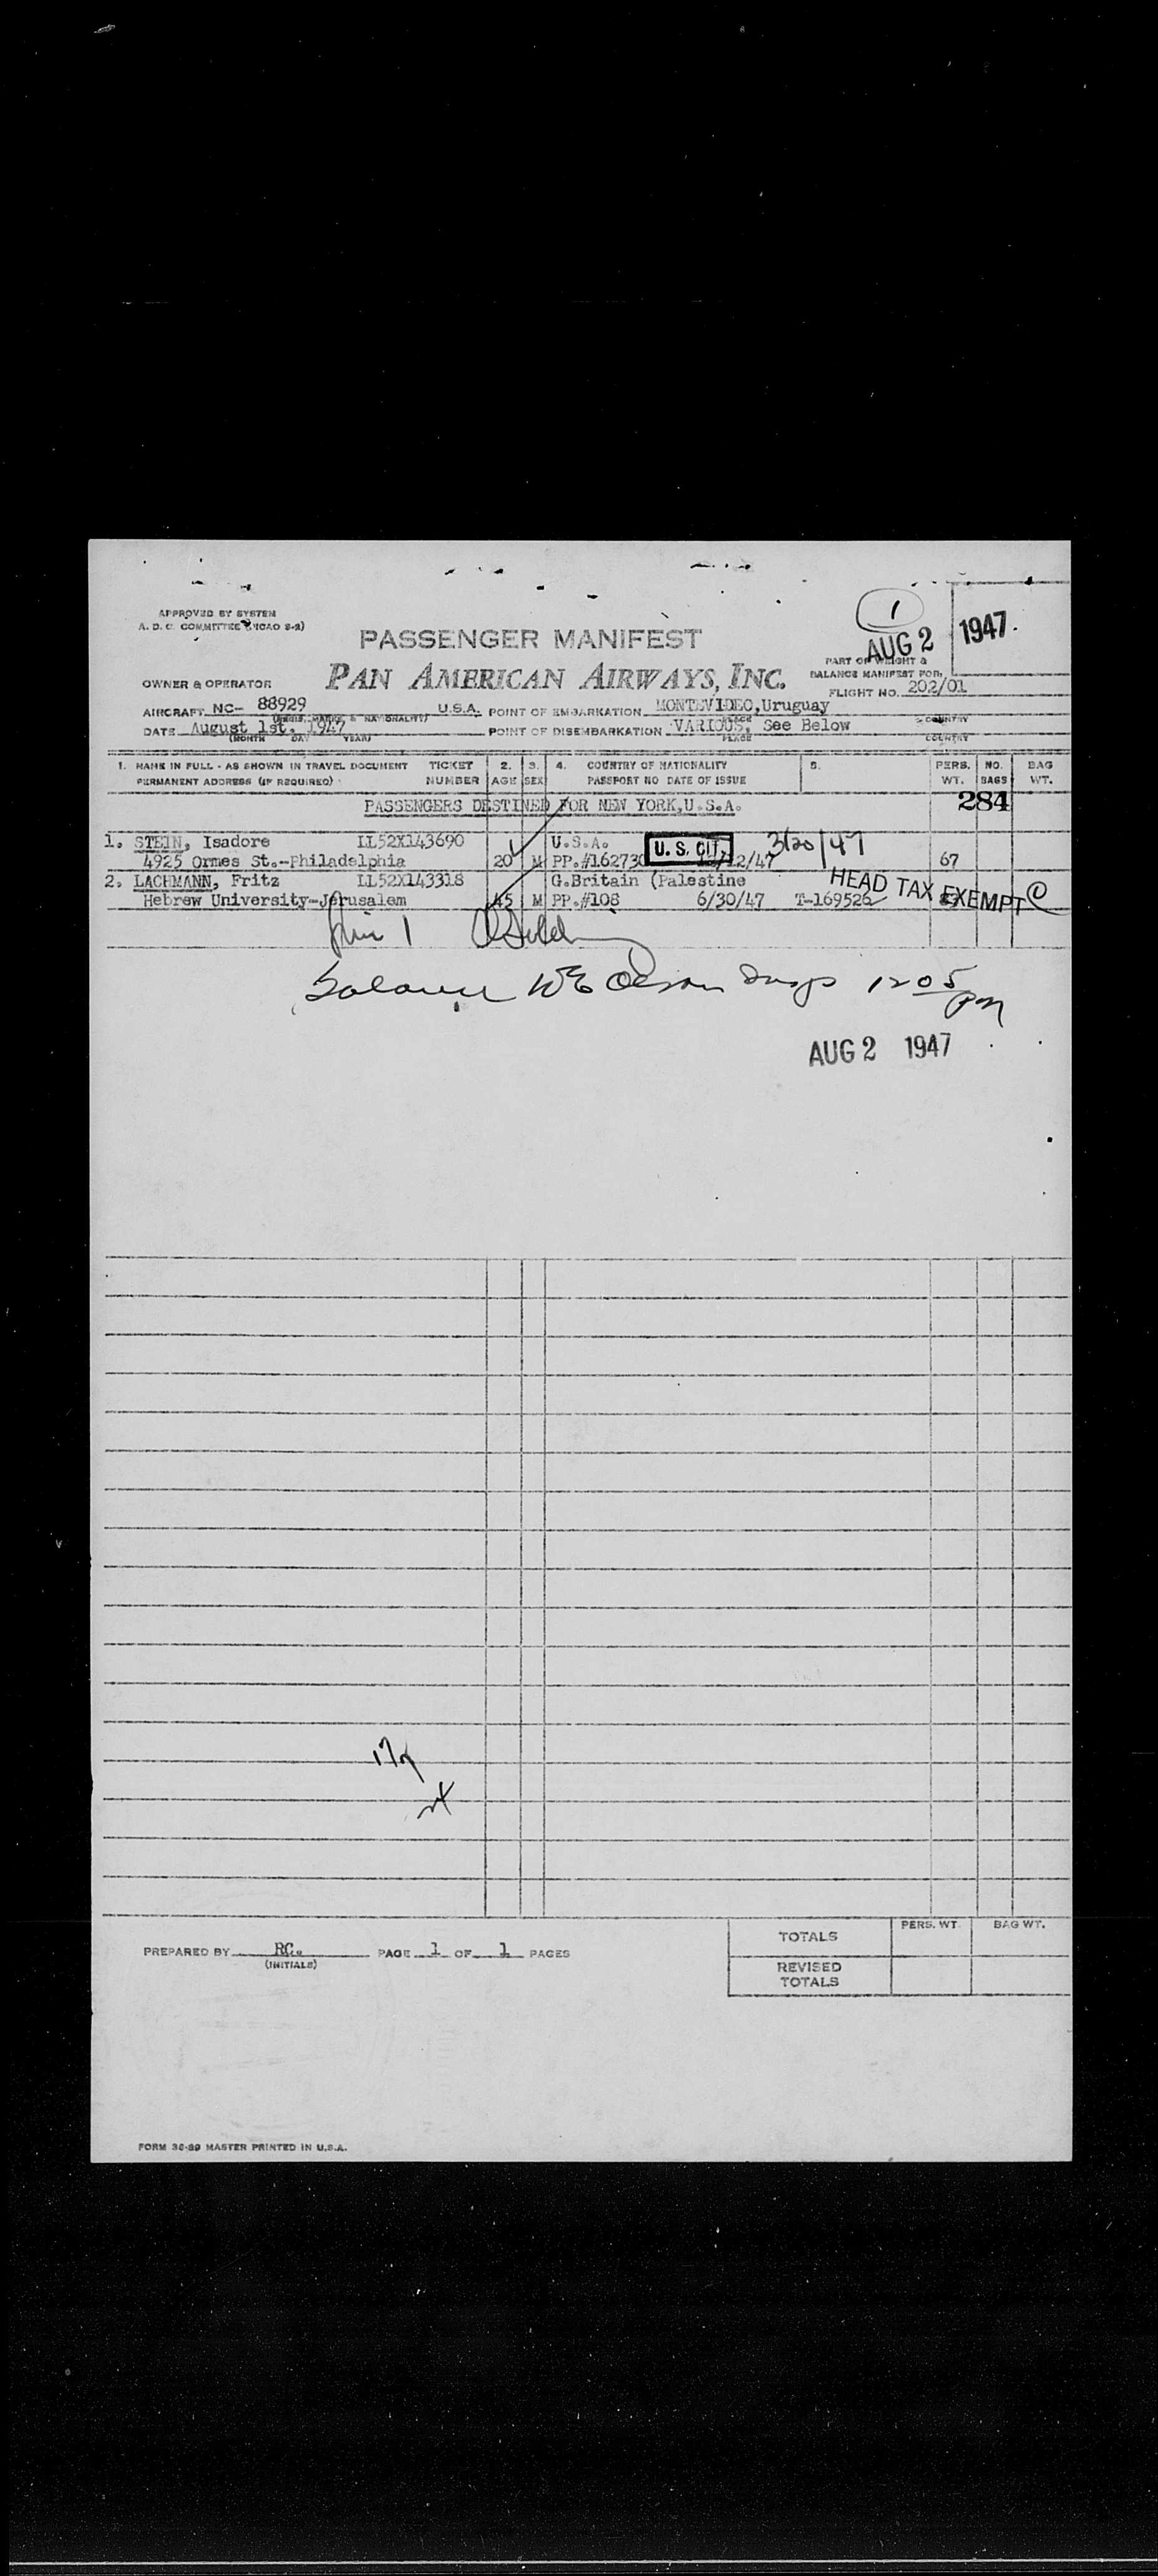 APPROVED BY SYSTEM
A. D. C. COMMITTEE (ICAO S-2)
1
AUG 2 1947.
PASSENGER MANIFEST
PAN AMERICAN AIRWAYS, INC.
PART OF WEIGHT &
BALANCE MANIFEST FOR,
FLIGHT NO. 202/01
OWNER & OPERATOR
AIRCRAFT NC- 88929 U.S.A. POINT OF EMBARKATION MONTEVIDEO, Uruguay
DATE August 1st. 1947 POINT OF DISEMBARKATION VARIOUS, See Below
(MONTH DAY YEAR) PLACE COUNTRY
1. NAME IN FULL - AS SHOWN IN TRAVEL DOCUMENT TICKET 2. 3. 4. COUNTRY OF NATIONALITY 5. PERS. NO. BAG
PERMANENT ADDRESS (IF REQUIRED) NUMBER AGE SEX PASSPORT NO DATE OF ISSUE WT. BAGS WT.
PASSENGERS DESTINED FOR NEW YORK, U.S.A. 284
1. STEIN, Isadore LL52X143690 U.S.A. U. S. CIT. 3/20/47
4925 Ormes St.-Philadelphia 20 M PP.#162730 /12/47 67
2. LACHMANN, Fritz LL52X143318 G.Britain (Palestine HEAD TAX EXEMPT
Hebrew University-Jerusalem 45 M PP.#108 6/30/47 T-169526
1
1205
PM
AUG 2 1947
PREPARED BY RC. PAGE 1 OF 1 PAGES
(INITIALS)
PERS. WT. BAG WT.
TOTALS
REVISED
TOTALS
FORM 36-89 MASTER PRINTED IN U.S.A.